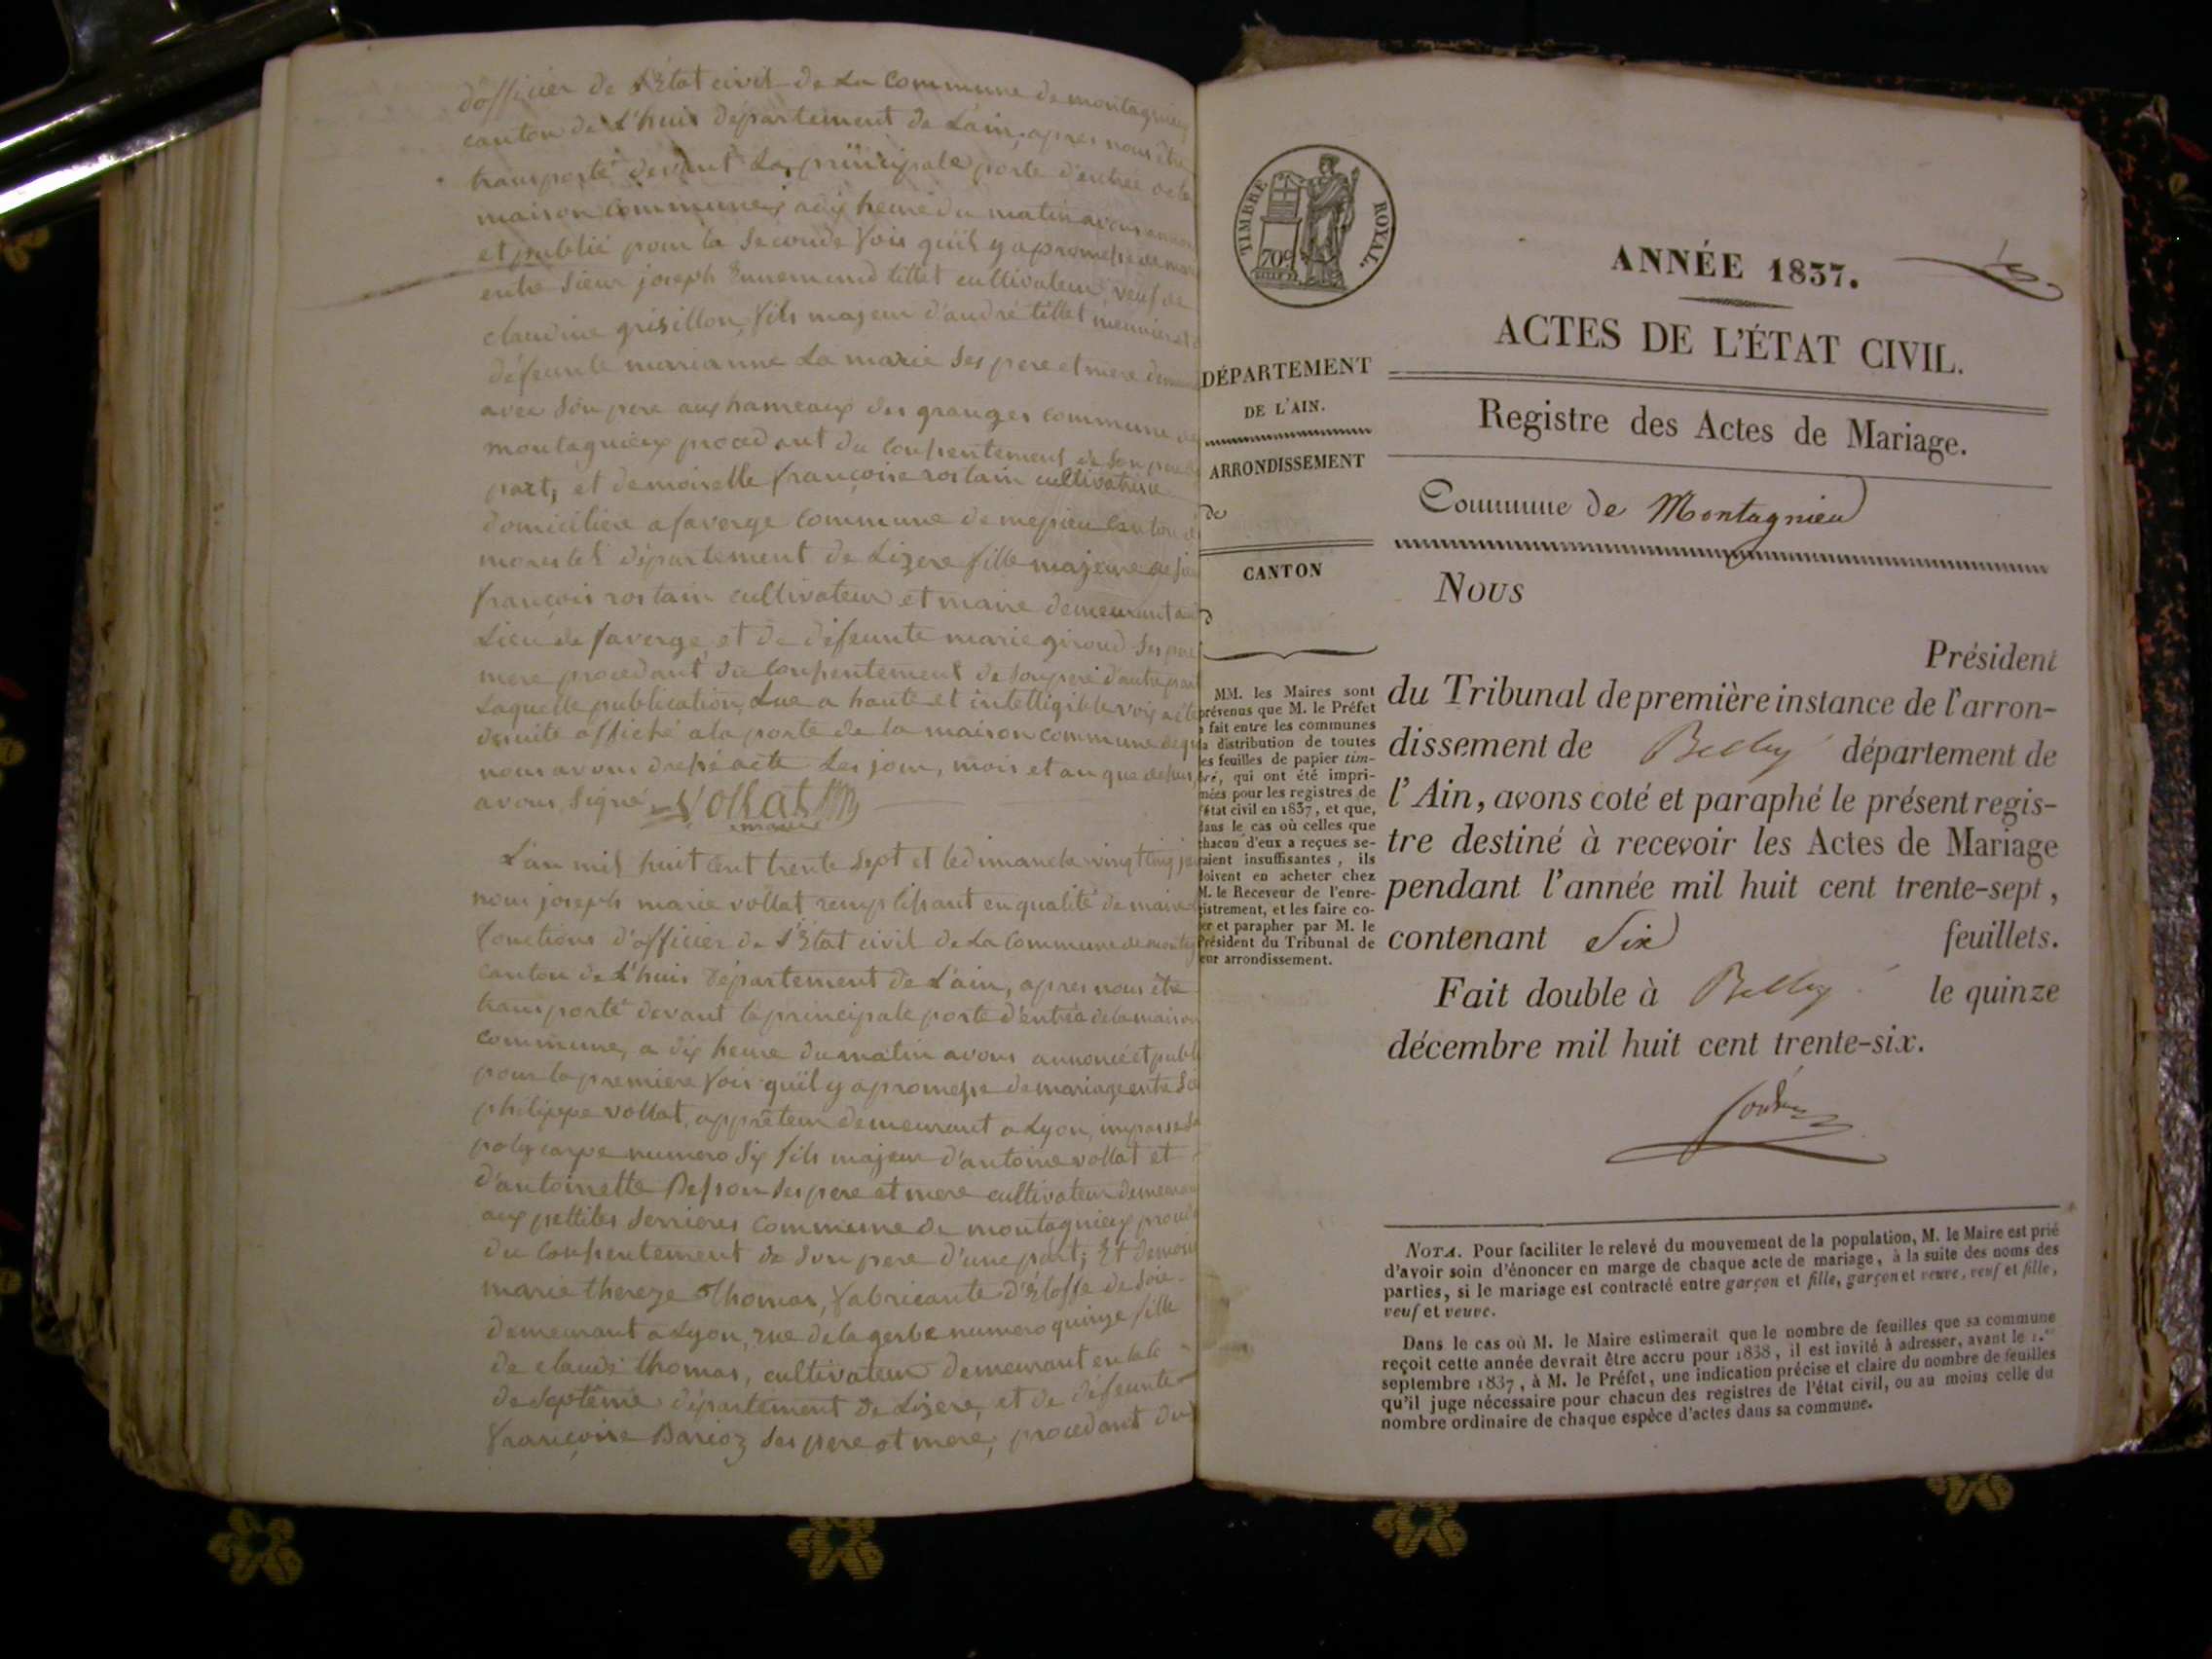 d'officier de l'État civil de La Commune de montagnieu
canton de L'huis département de Lain, apres nous être
transporté devant La principale porte d'entrée de la
maison Commune, a dix heure du matin avons
et publié pour la seconde fois quil y a promesse de
entre sieur joseph Ennemond tillet cultivateur, veuf de
claudine grisillon, fils majeur d'andré tillet meunier et
défeunte marianne La marie ses pere et mere
avec son pere aux hameaux des granges commune de
montagnieux procedant du Consentement de son pere
part, et demoiselle françoise rostain cultivatrice
domicilière a faverge Commune de mepieu Canton de
morestel département de Lizere fille majeure de
françois rostain cultivateur et maire demeurant au
Lieu de faverge, et de défeunte marie giroud ses pere
mere procedant du Consentement de son pere d'autre part
Laquelle publication, Lue a haute et intelligible voix a été
desuite affiché a la porte de la maison commune
nous avons dressé acte Les jour, mois et an que dessus
avons signé Vollat
maire
L'an mil huit cent trente sept et le dimanche vingt cinq
nous joseph marie vollat remplissant en qualité de maire
fonctions d'officier de l'État civil de La Commune de
canton de L'huis département de L'ain, apres nous être
transporté devant la principale porte d'entrée de la maison
commune, a dix heure du matin avons annoncé et
pour la premiere fois quil y a promesse de mariage entre
philippe vollat, apprêteur demeurant a Lyon, impasse
polycarpe numero Six fils majeur d'antoine vollat et
d'antoinette Besson ses pere et mere cultivateur
aux pettites Serrieres Commune de montagnieux
du Consentement de son pere d'une part; Et
marie thereze Thomas, fabricante d'Étoffe de soie
demeurant a Lyon, rue de la gerbe numero quinze fille
de claude thomas, cultivateur demeurant
de septême département de Lizere, et de défeunte
françoise Barioz ses pere et mere, procedant du
TIMBRE ROYAL.
70c
ANNÉE 1837.
ACTES DE L'ÉTAT CIVIL.
DÉPARTEMENT
DE L'AIN.
ARRONDISSEMENT
de
CANTON
Registre des Actes de Mariage.
Commune de Montagnieu
Nous
Président
du Tribunal de première instance de l'arron-
dissement de Belley département de
l'Ain, avons coté et paraphé le présent regis-
tre destiné à recevoir les Actes de Mariage
pendant l'année mil huit cent trente-sept,
contenant Six feuillets.
Fait double à Belley le quinze
décembre mil huit cent trente-six.
MM. les Maires sont
prévenus que M. le Préfet
a fait entre les communes
la distribution de toutes
les feuilles de papier tim-
bré, qui ont été impri-
mées pour les registres de
l'état civil en 1837, et que,
dans le cas où celles que
chacun d'eux a reçues se-
raient insuffisantes, ils
doivent en acheter chez
M. le Receveur de l'enre-
gistrement, et les faire co-
ter et parapher par M. le
Président du Tribunal de
leur arrondissement.
NOTA. Pour faciliter le relevé du mouvement de la population, M. le Maire est prié
d'avoir soin d'énoncer en marge de chaque acte de mariage, à la suite des noms des
parties, si le mariage est contracté entre garçon et fille, garçon et veuve, veuf et fille,
veuf et veuve.
Dans le cas où M. le Maire estimerait que le nombre de feuilles que sa commune
reçoit cette année devrait être accru pour 1838, il est invité à adresser, avant le 1.er
septembre 1837, à M. le Préfet, une indication précise et claire du nombre de feuilles
qu'il juge nécessaire pour chacun des registres de l'état civil, ou au moins celle du
nombre ordinaire de chaque espèce d'actes dans sa commune.